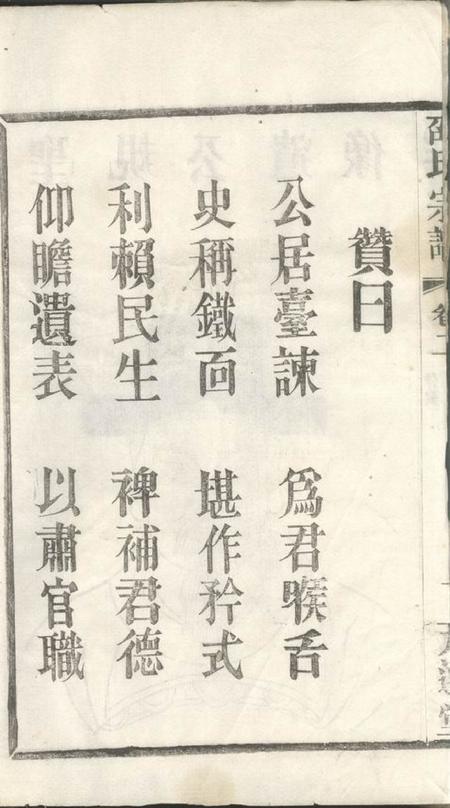 贊曰
公居臺諫 為君喉舌
史稱鐵面 堪作矜式
利賴民生 裨補君德
仰瞻遺表 以肅官職
邵氏宗譜 卷二